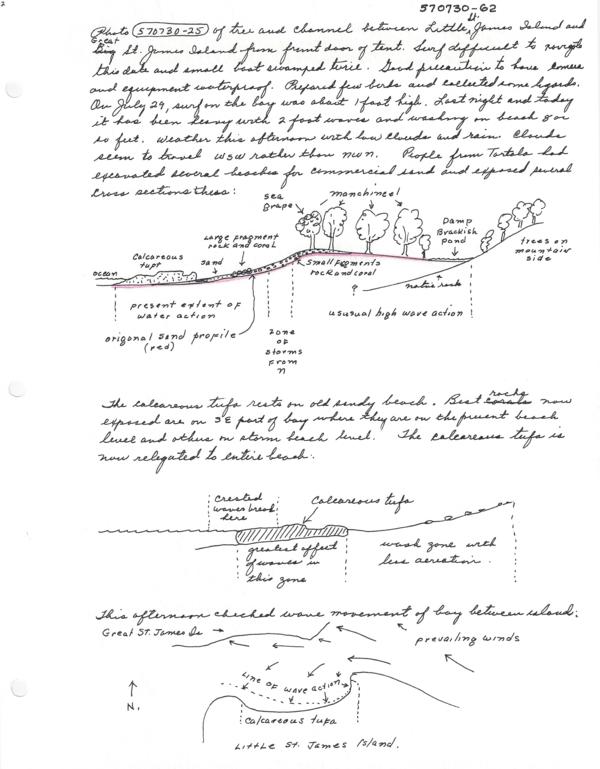 2
570730-62
Photo 570730-25 of tree and channel between Little St. James Island and
Great St. James Island from front door of tent. Surf difficult to navigate
this date and small boat swamped twice. Good precaution to have camera
and equipment waterproof. Prepared few birds and collected some lizards.
On July 29, surf on the bay was about 1 foot high. Last night and today
it has been heavy with 2 foot waves and washing on beach 8 or
10 feet. Weather this afternoon with low clouds and rain. Clouds
seem to travel WSW rather than NWN. People from Tortola had
excavated several beaches for commercial sand and exposed several
cross sections thus:
sea
grape
manchineel
Large fragment
rock and coral
Damp
Brackish
pond
Calcareous
tuft
sand
small fragments
rock and coral
trees on
mountain
side
ocean
?
native rock
present extent of
water action
usual high wave action
original sand profile
(red)
zone
of
storms
from
N
The calcareous tufa rests on old sandy beach. Best rocks now
exposed are on SE part of bay where they are on the present beach
level and others on storm beach level. The calcareous tufa is
now relegated to entire beach.
Created
waves break
here
Calcareous tufa
greatest effect
of waves in
this zone
wash zone with
less aeration.
This afternoon checked wave movement of bay between island:
Great St. James Is
prevailing winds
Line of wave action
N.
Calcareous tufa
Little St. James Island.